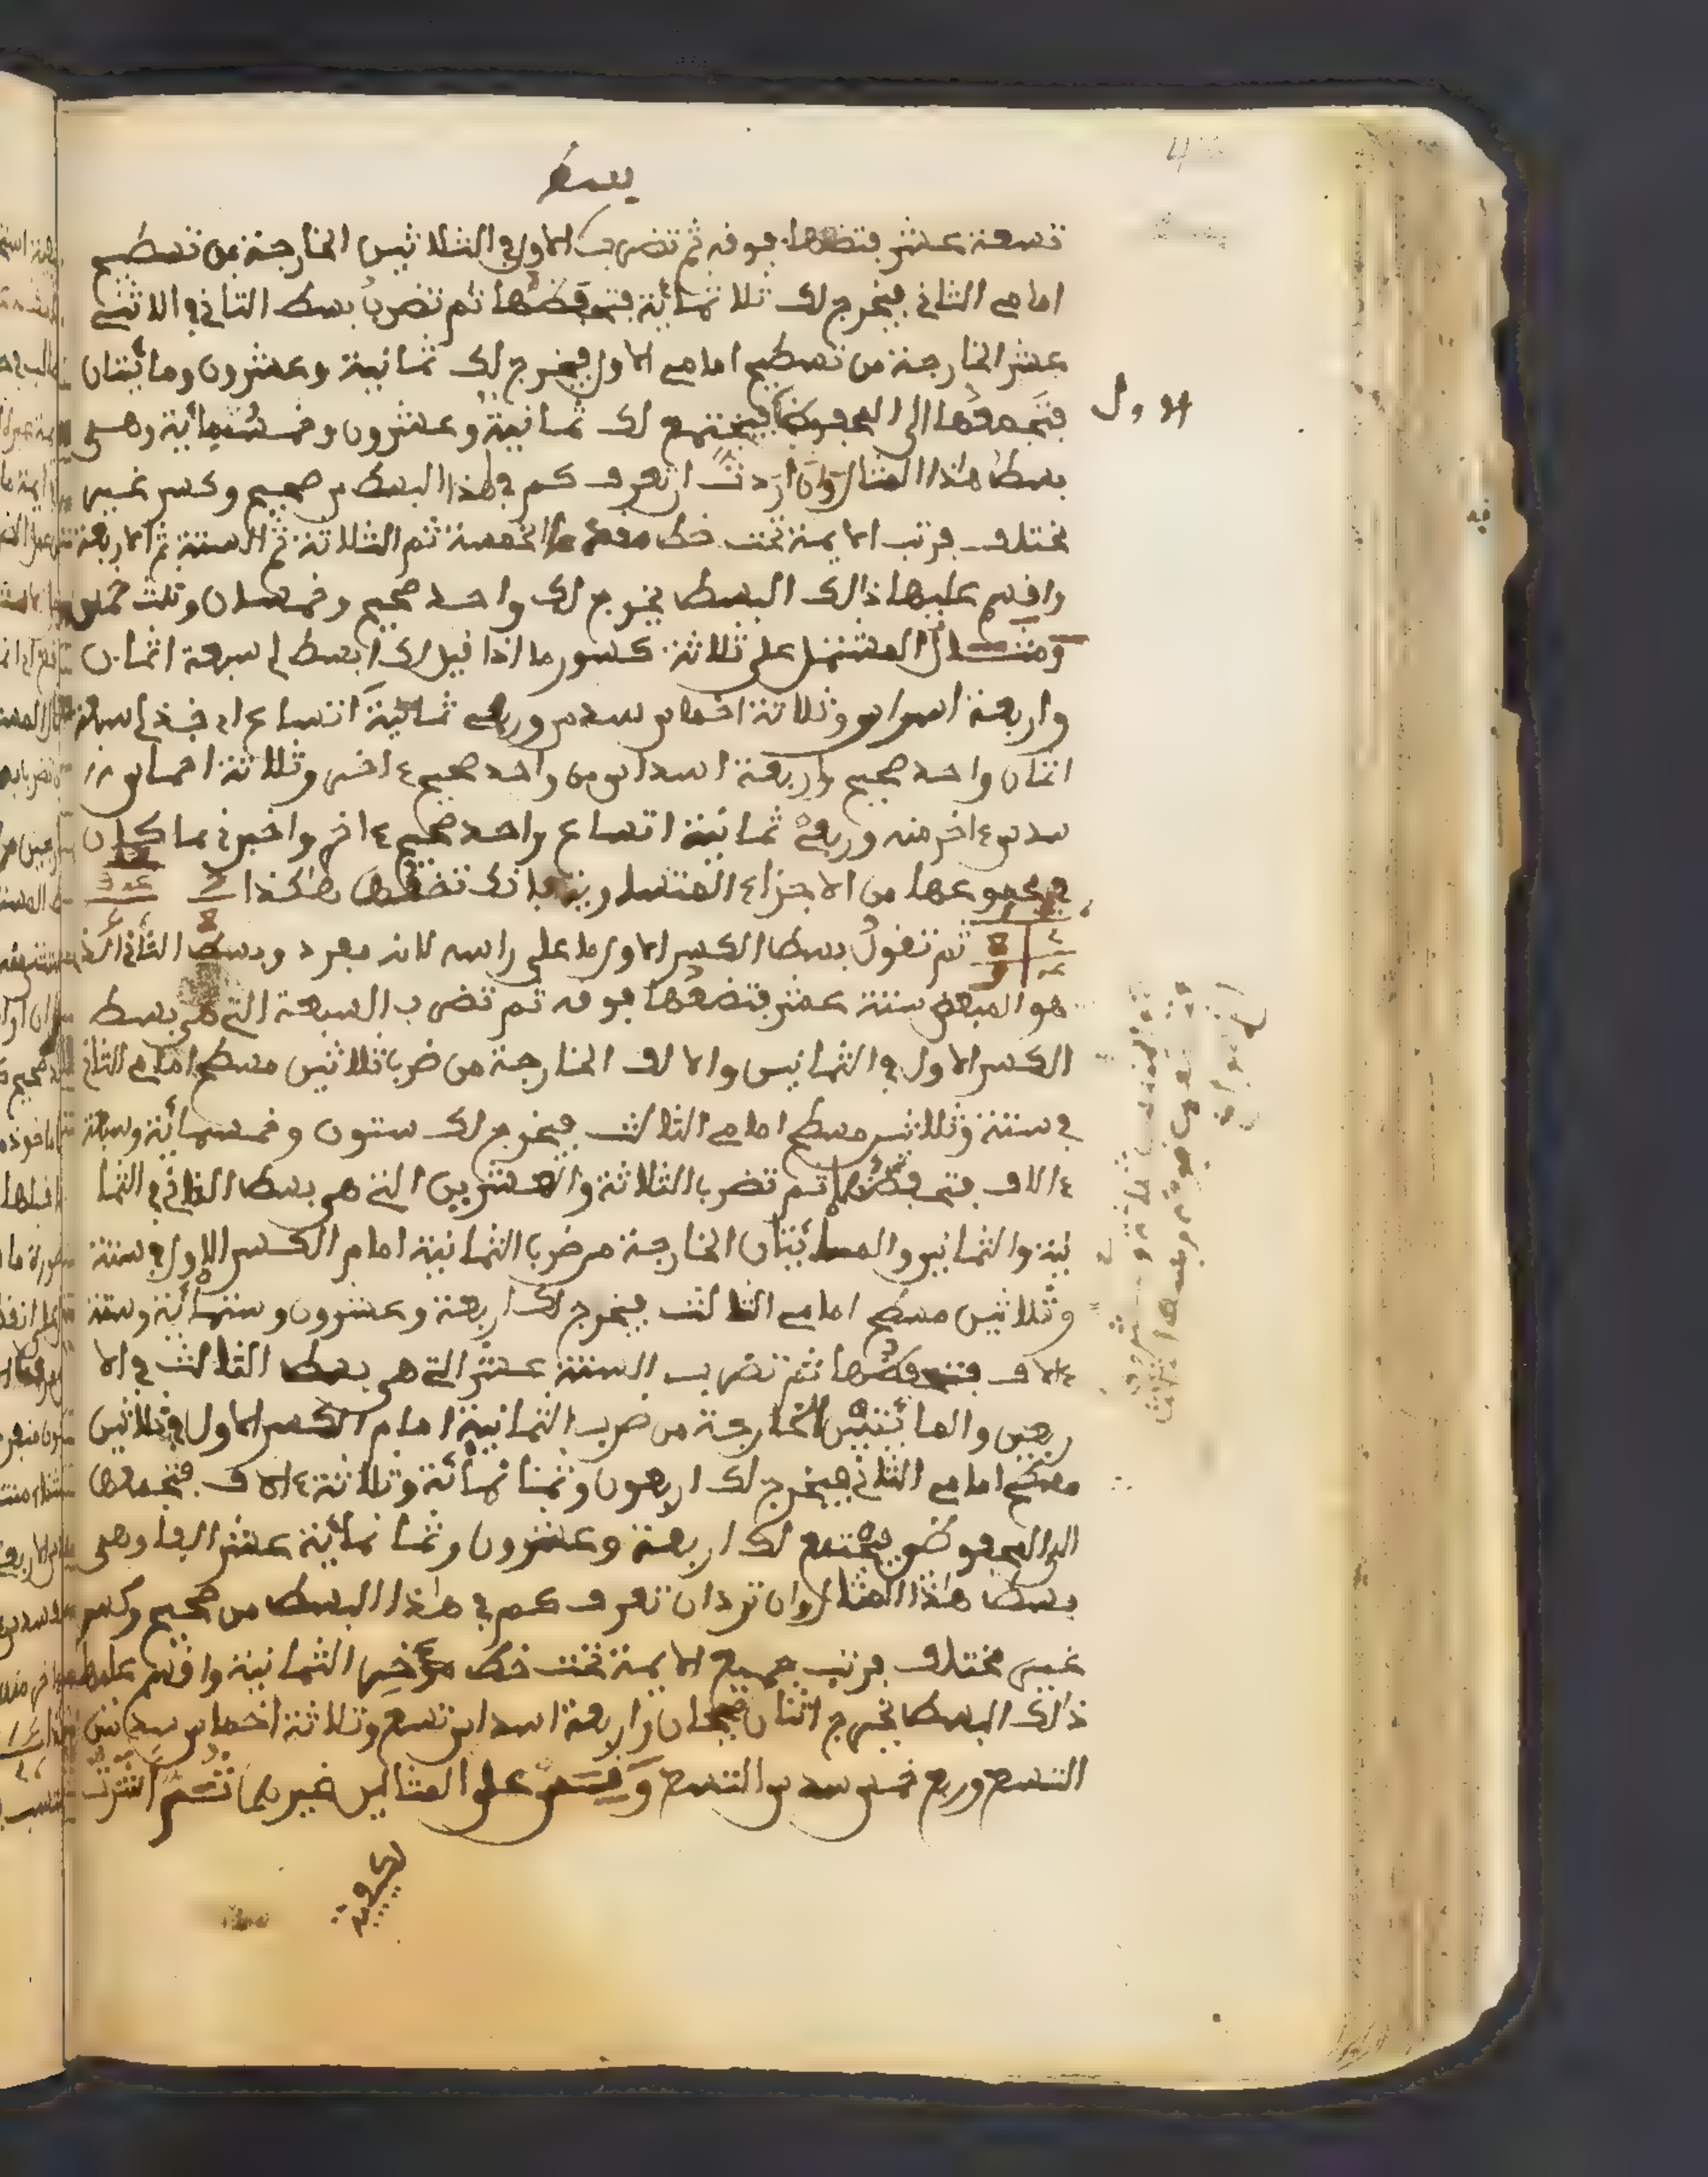 4
بسط
تسعة عشر فتضعها فوفه ثم تضرب الاول في الثلاثين الخارجة من تسطيح
امامي الثاني فيخرج لك ثلاثمائة فتحفظها ثم تضرب بسط الثاني في الاثني
عشر الخارجة من تسطيح امامي الاول فيخرج لك ثمانية وعشرون ومائتان
فتجمعها الى المحفوظ فيجتمع لك ثمانية وعشرون وخمسمائة وهي
الاول
بسط هذا المثال وان اردت ان تعرف كم في هذا البسط من صحيح وكسر غير
مختلف فرتب الايمة تحت خط الخمسة ثم الثلاثة ثم الستة ثم الاربعة
وافسم عليها ذالك البسط يخرج لك واحد صحيح وخمسان وثلث خمس
ومثال المشتمل على ثلاثة كسور ما اذا فيل لك ابسط لي سبعة اثمان
واربعة اسداس وثلاثة اخماس سدس وربعي ثمانية اتساع اي خذ لي سبعة
اثمان واحد صحيح واربعة اسداس من واحد صحيح ءاخر وثلاثة اخماس
سدس ءاخر منه وربعي ثمانية اتساع واحد صحيح ءاخر واخبرني بما كان
في مجموعها من الاجزاء المتساوية فانك تضعها هكذا
ثم تفول بسط الكسر الاول ما على راسه لانه مفرد وبسط الثاني
هو المبعض ستة عشر فتضعها فوفه ثم تضرب السبعة التي هي بسط
الكسر الاول في الثمانين والالف الخارجة من ضرب ثلاثين مسطح امامي الثاني
في ستة وثلاثين مسطح امامي الثالث فيخرج لك ستون وخمسمائة وسبعة
ءالاف فتحفظها ثم تضرب الثلاثة والعشرين التي هي بسط الثاني في الثما
نية والثمانين والمائتان الخارجة من ضرب الثمانية امام الكسر الاول في ستة
وثلاثين مسطح امامي الثالث فيخرج لك اربعة وعشرون وستمائة وستة
ءالاف فتحفظها ثم تضرب الستة عشر التي هي بسط الثالث في الا
ربعين والمائتين الخارجة من ضرب الثمانية امام الكسر الاول في ثلاثين
مسطح امامي الثاني فيخرج لك اربعون وثمانمائة وثلاثة ءالاف فتجمعها
الى المحفوظين فيجتمع لك اربعة وعشرون وثمانمائة عشر الفا وهي
بسط هذا المثال وان ترد ان تعرف كم في هذا البسط من صحيح وكسر
غير مختلف فرتب جميع الايمة تحت خط مؤخرا الثمانية وافسم عليها
ذلك البسط يخرج اثنان صحيحان واربعة اسداس تسع وثلاثة اخماس سدس
التسع وربع خمس سدس التسع وفس على المثالين غيرهما ثم اشرت